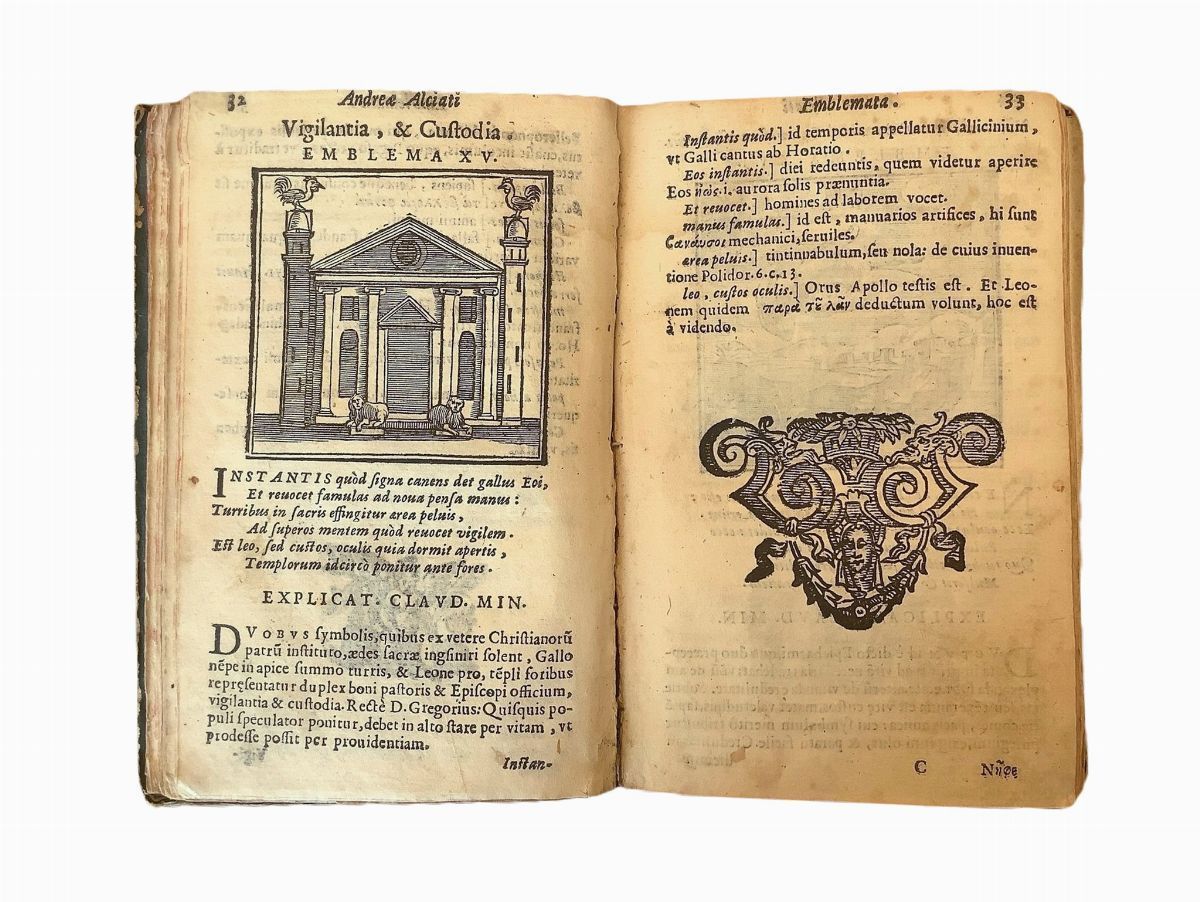 32 Andreæ Alciati
Vigilantia, & Custodia.
EMBLEMA XV.
INSTANTIS quòd signa canens det gallus Eoi,
Et reuocet famulas ad noua pensa manus:
Turribus in sacris effingitur ærea peluis,
Ad superos mentem quòd reuocet vigilem.
Est leo, sed custos, oculis quia dormit apertis,
Templorum idcircò ponitur ante fores.
EXPLICAT. CLAVD. MIN.
DVOBVS symbolis, quibus ex vetere Christianorũ
patrũ instituto, ædes sacræ ingsiniri solent, Gallo
nẽpe in apice summo turris, & Leone pro, tẽpli foribus
repręsentatur duplex boni pastoris & Episcopi officium,
vigilantia & custodia. Rectè D. Gregorius: Quisquis po-
puli speculator ponitur, debet in alto stare per vitam, vt
prodesse possit per prouidentiam.
Instan-
Emblemata. 33
Instantis quòd.] id temporis appellatur Gallicinium,
vt Galli cantus ab Horatio.
Eos instantis.] diei redeuntis, quem videtur aperire
Eos ἠώς. i. aurora solis prænuntia.
Et reuocet.] homines ad laborem vocet.
manus famulas.] id est, manuarios artifices, hi sunt
βαναυσοι mechanici, seruiles.
area peluis.] tintinnabulum, seu nola: de cuius inuen-
tione Polidor. 6. c. 13.
leo, custos oculis.] Orus Apollo testis est. Et Leo-
nem quidem παρὰ τοῦ λᾶν deductum volunt, hoc est
à videndo.
C